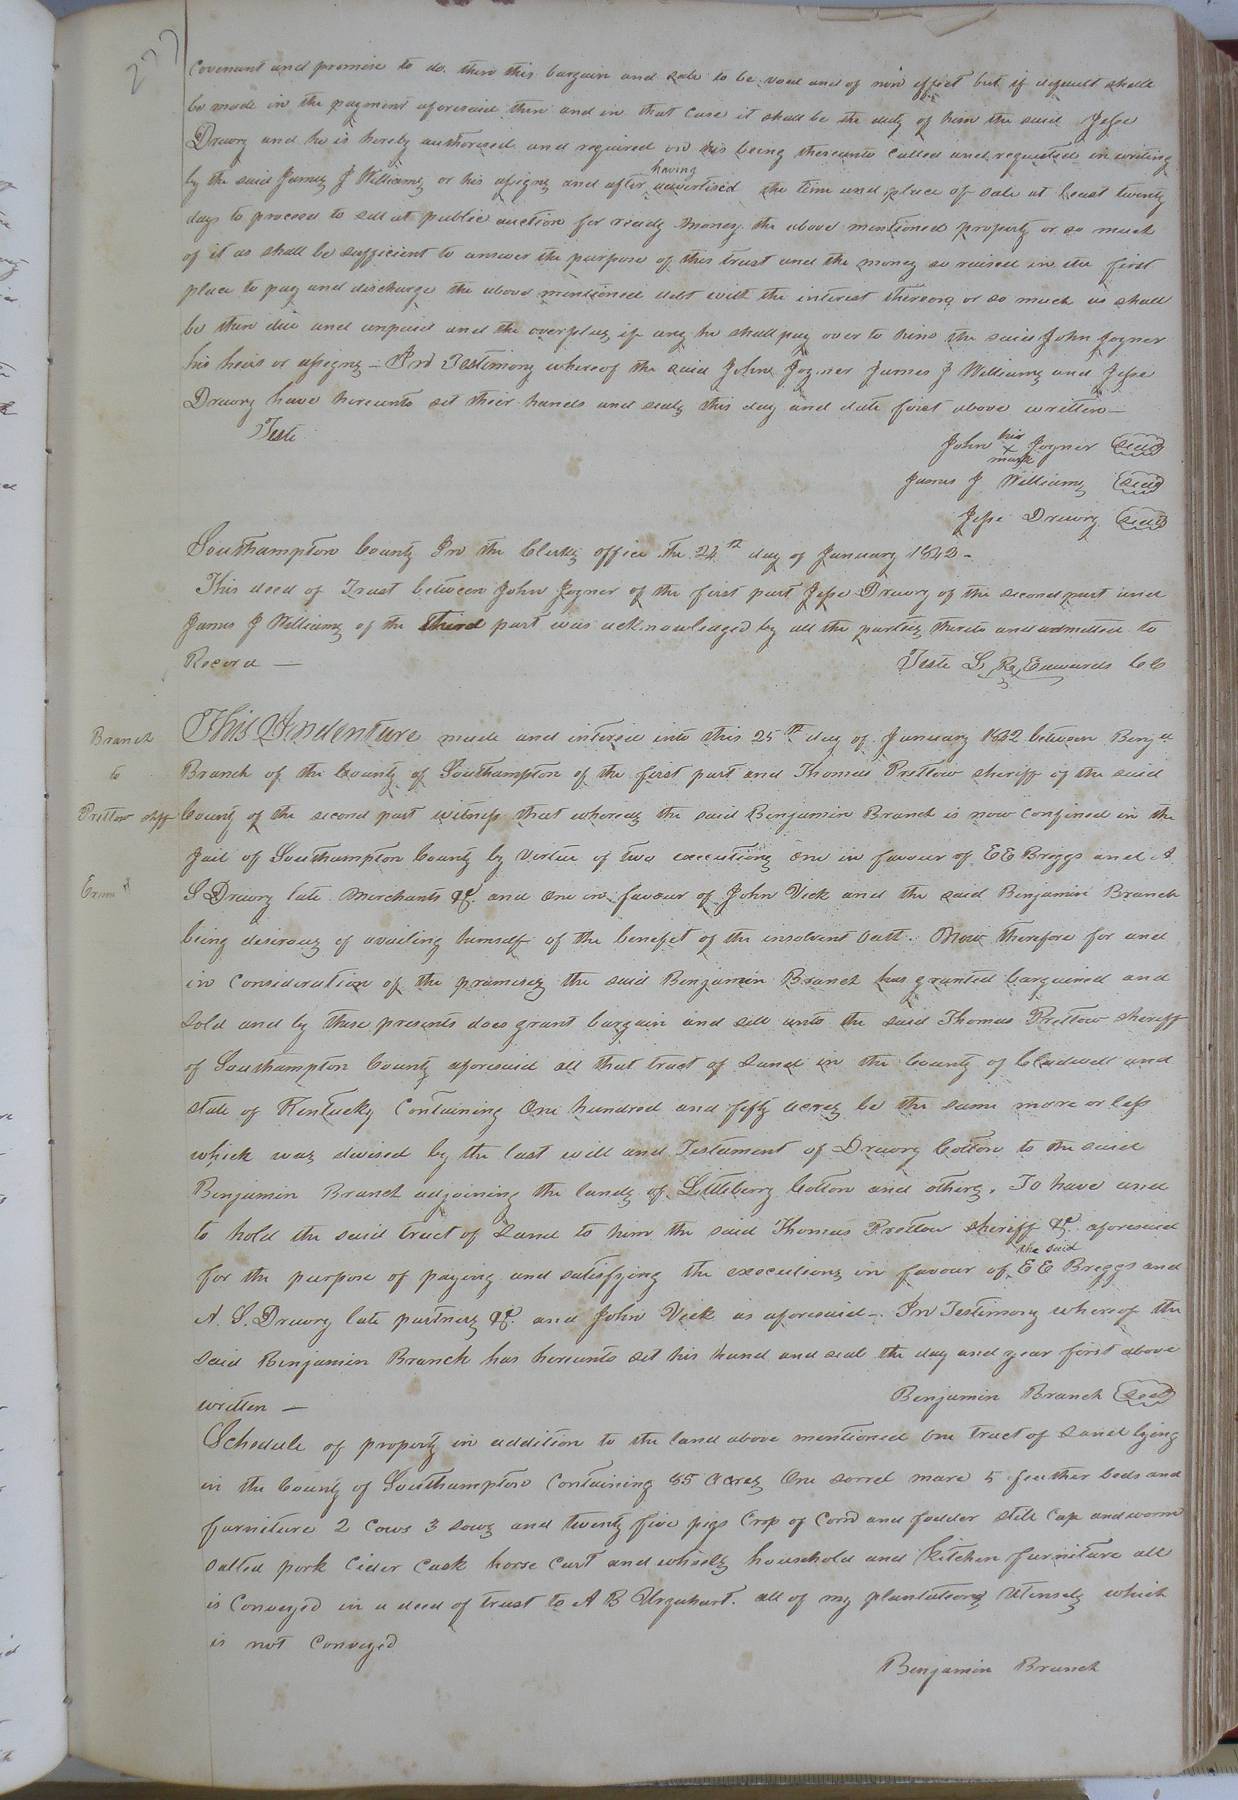 277
Covenant and promise to do. then this bargain and sale to be void and of non effect but if default shall
be made in the payment aforesaid then and in that case it shall be the duty of him the said Jesse
Drewry and he is hereby authorised and required on his being thereunto called and requested in writing
by the said James J Williams or his assigns and after having advertised the time and place of sale at least twenty
days to proceed to sell at public auction for ready money the above mentioned property or so much
of it as shall be sufficient to answer the purpose of this trust and the money so raised in the first
place to pay and discharge the above mentioned debt with the interest thereon or so much as shall
be then due and unpaid and the overplus if any he shall pay over to him the said John Joyner
his heirs or assigns – In Testimony whereof the said John Joyner James J Williams and Jesse
Drewry have hereunto set their hands and seals this day and date first above written –
Teste
John his x mark Joyner seal
James J Williams seal
Jesse Drewry seal
Southampton County In the Clerks office the 24th day of January 1842 –
This deed of Trust between John Joyner of the first part Jesse Drewry of the second part and
James J Williams of the third part was acknowledged by all the parties thereto and admitted to
Record — Teste L R Edwards CC
Branch
to
Pretlow shff
Exam d
This Indenture made and entered into this 25th day of January 1842 between Benja
Branch of the County of Southampton of the first part and Thomas Pretlow sheriff of the said
County of the second part witness that whereas the said Benjamin Branch is now confined in the
Jail of Southampton County by virtue of two executions one in favour of E E Briggs and A
S Drewry late Merchants &c. and one in favour of John Vick and the said Benjamin Branch
being desirous of availing himself of the benefit of the insolvent Oath. Now therefore for and
in Consideration of the premises the said Benjamin Branch has granted bargained and
sold and by these presents does grant bargain and sell unto the said Thomas Pretlow sheriff
of Southampton County aforesaid all that tract of Land in the County of Cladwell and
state of Kentucky Containing One hundred and fifty acres be the same more or less
which was devised by the last will and Testament of Drewry Cotton to the said
Benjamin Branch adjoining the lands of Littleberry Cotton and others. To have and
to hold the said tract of Land to him the said Thomas Pretlow sheriff &c. aforesaid
for the purpose of paying and satisfying the executions in favour of the said E E Briggs and
A. S. Drewry late partners &c. and John Vick as aforesaid –. In Testimony whereof the
said Benjamin Branch has hereunto set his hand and seal the day and year first above
written — Benjamin Branch seal
Schedule of property in addition to the land above mentioned one tract of Land lying
in the County of Southampton Containing 85 acres One sorrel mare 5 feather beds and
furniture 2 Cows 3 sows and twenty five pigs Crop of Corn and fodder still Cap and worm
salted pork Cider Cask horse cart and wheels household and kitchen furniture all
is Conveyed in a deed of trust to A B Urquhart. all of my plantation Utensels which
is not Conveyed
Benjamin Branch